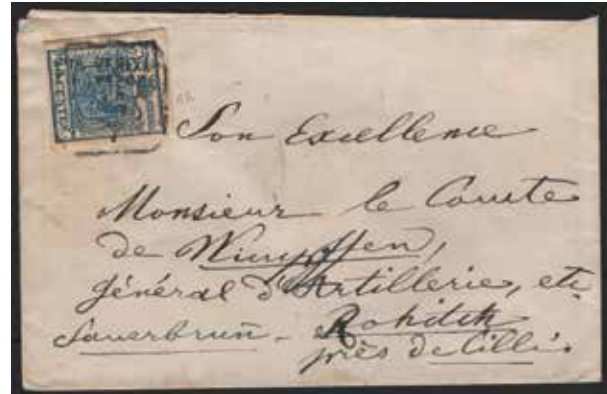 Son Excellence
Monsieur le Comte
de Wimpffen,
Général d'Artillerie, etc
Sauerbrunn̄ - Rohitch
près de Cilli.